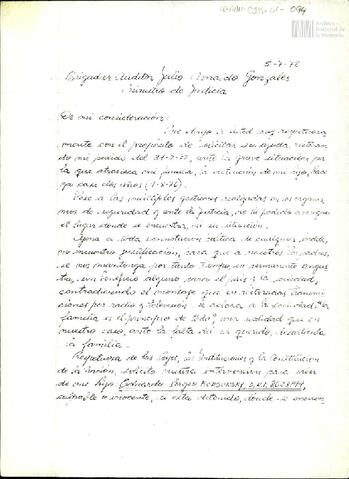 Archivo
Nacional de
la Memoria
5-7-78
Brigadier Auditor Julio Arnaldo Gomez
Ministro de Justicia
De mi consideración:
Me dirijo a usted muy respetuosa
mente con el propósito de solicitar su ayuda
do mi pedido del 21-7-77, ante la grave situación por
la que atraviesa mi familia, la detención de mi hijo, hace
ya casi dos años (1-8-76).
Pese a las múltiples gestiones realizadas en los organis
mos de seguridad y ante la justicia, no he podido averiguar
el lugar donde se encuentra, ni su situación.
Ajena a toda connotación política de cualquier orden,
no encuentro justificación, para que a nuestros
se nos mantenga por tanto tiempo en permanente angus
tia, sin beneficio alguno para el país y la sociedad,
contradiciendo el mensaje que en reiteradas transmi
siones por radio y televisión le a la sociedad: "la
familia es el principio de todo", una realidad que en
nuestro caso, ante la falta del ser querido,
la familia.
Respetuosa de las leyes, las Instituciones y la Constitución
de la Nación, solicito vuestra intervención para saber
de mi hijo Eduardo Sergio
culpable o inocente, si está detenido, donde se encuen